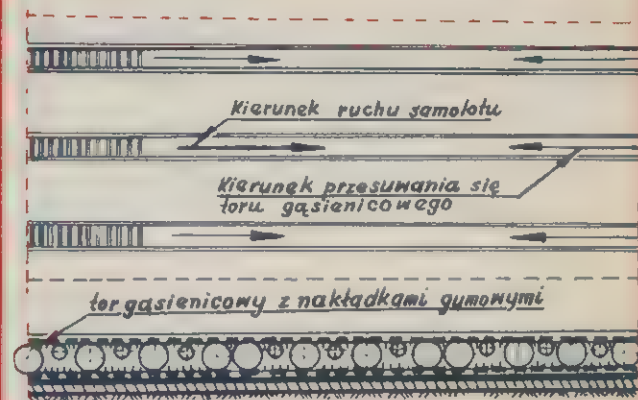 Kierunek ruchu samolotu
Kierunek przesuwania się
toru gąsienicowego
tor gąsienicowy z nakładkami gumowymi